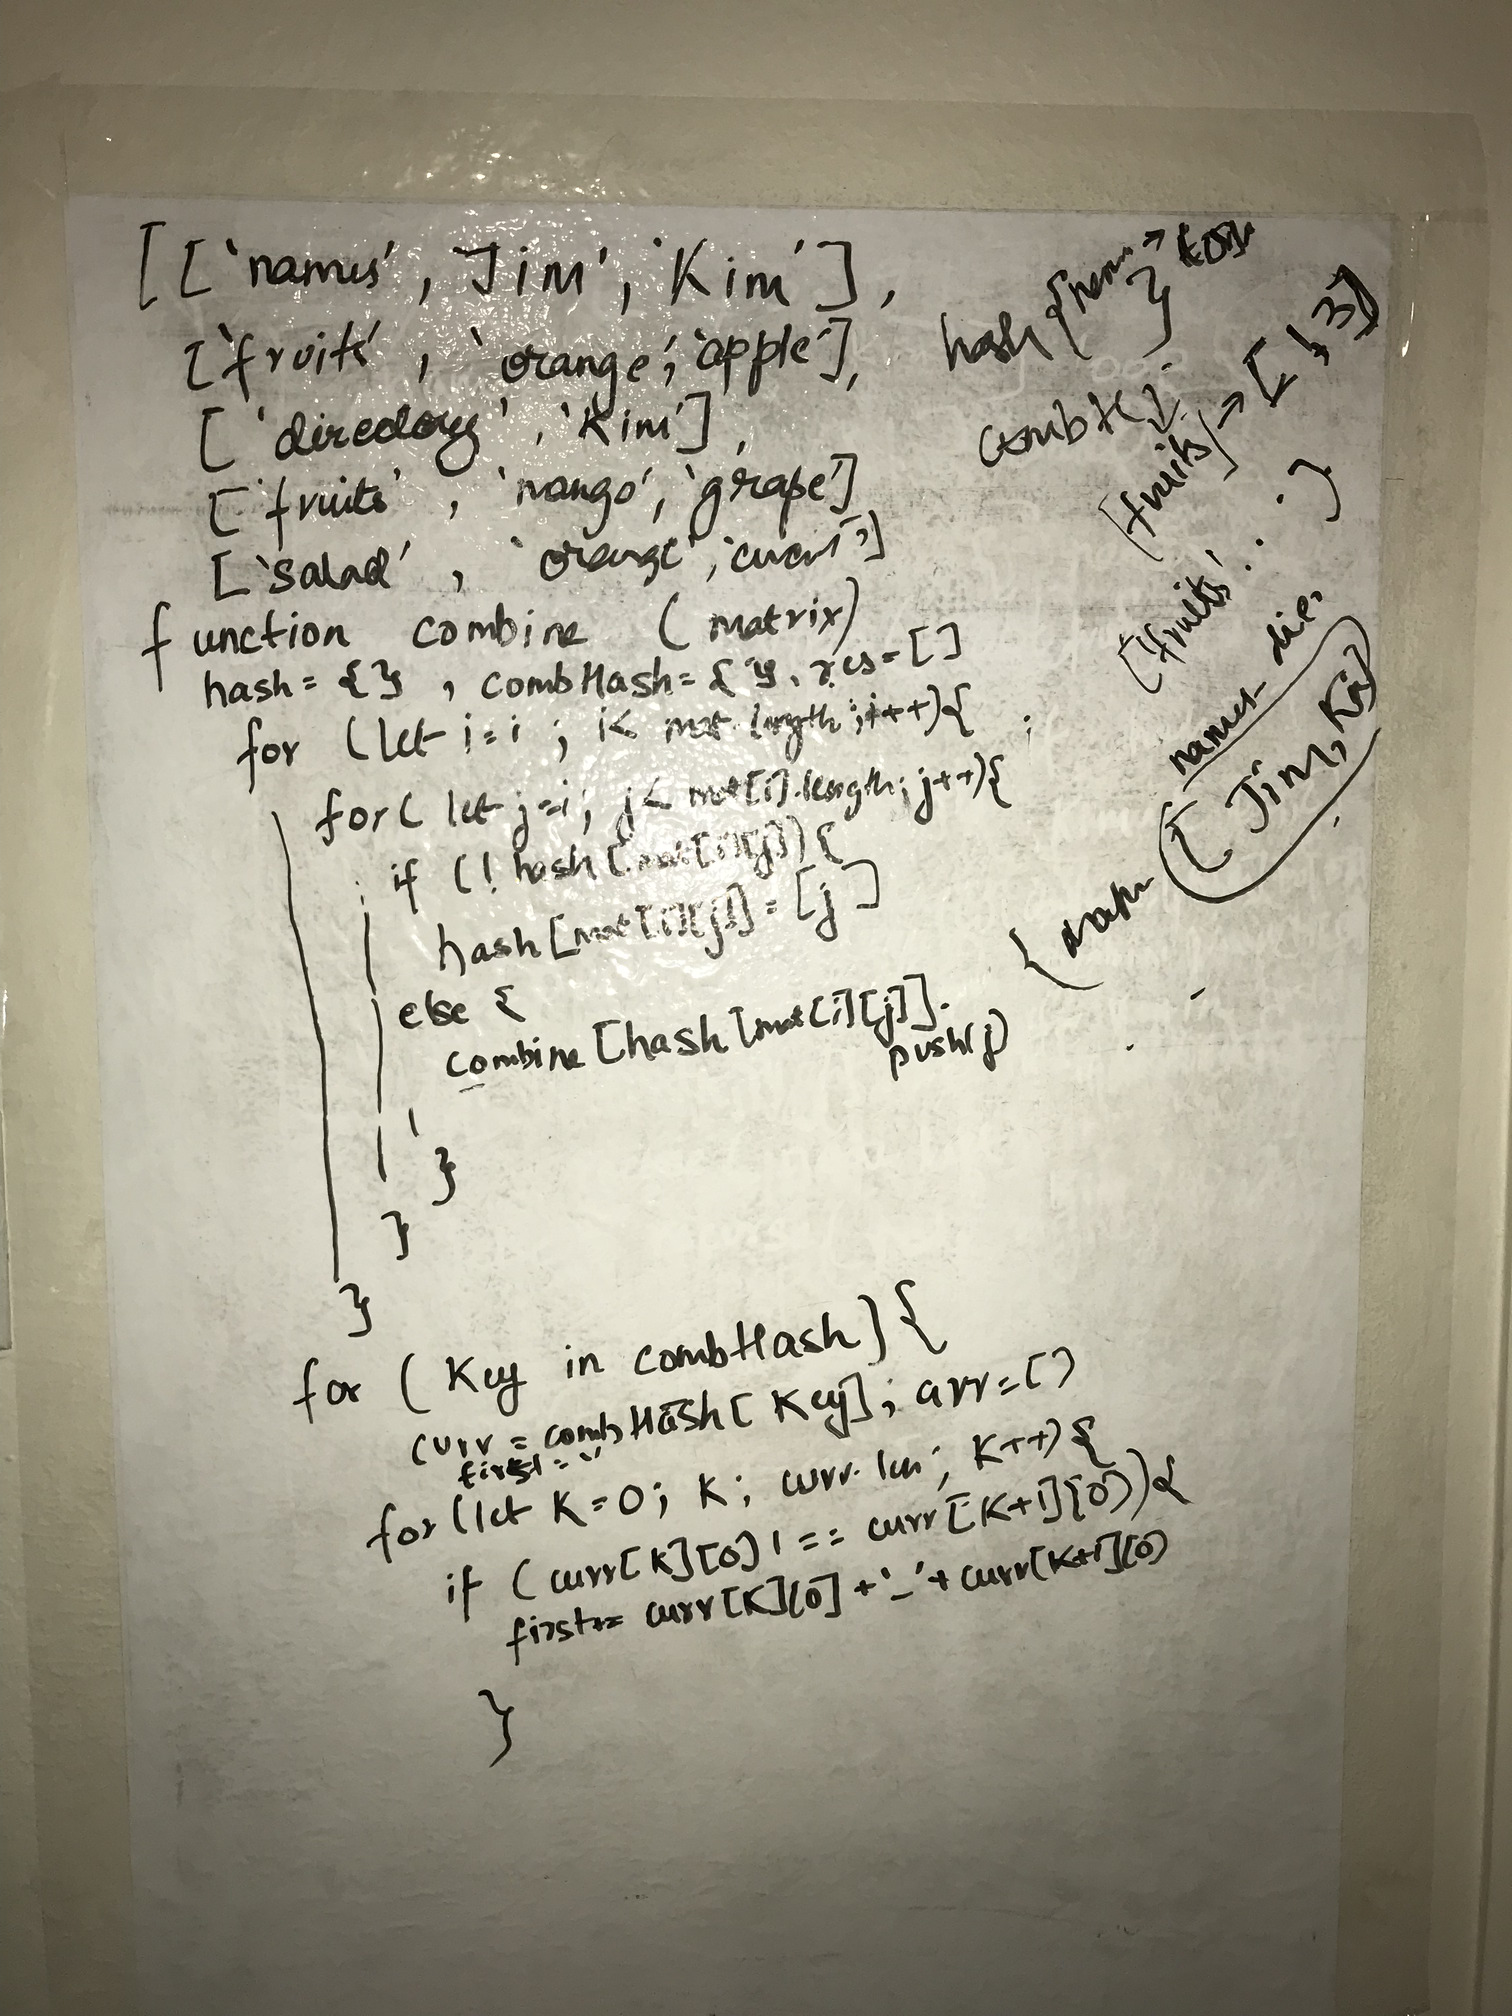 [['names', Jim', 'Kim'],
['fruits', 'orange', 'apple'],
['directory', 'Kim'],
['fruits', 'mango', 'grape']
['salad', 'orange', 'cucum']
function combine (matrix)
hash = {} , combHash = {}, res = []
for (let i=i ; i< mat.length ; i++){
for( let j=i; j< mat[i].length; j++){
if (! hash [mat[i][j]) {
hash [mat[i][j]] = [j]
else {
combine [hash [mat[i][j]].
push(j)
}
}
}
for ( Key in combHash) {
curr = combHash[ Key]; arr=[]
first = ''
for (let K=0; K; curr.len; K++) {
if (curr[K][0] !== curr[K+1][0]){
first+= curr[K][0] +'_'+ curr[K+1][0]
}
hash {
}
combH{}
[fruits] → [1,3]
['fruits' . . . ]
names-dir,
[ Jim, Kim]